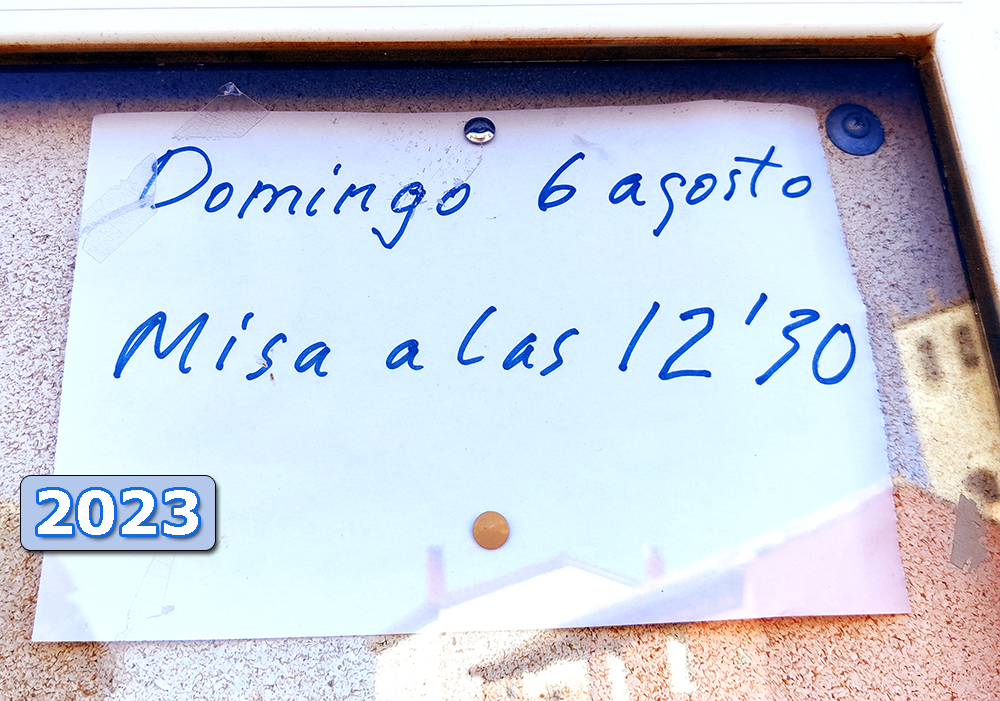 Domingo 6 agosto
Misa a las 12'30
2023